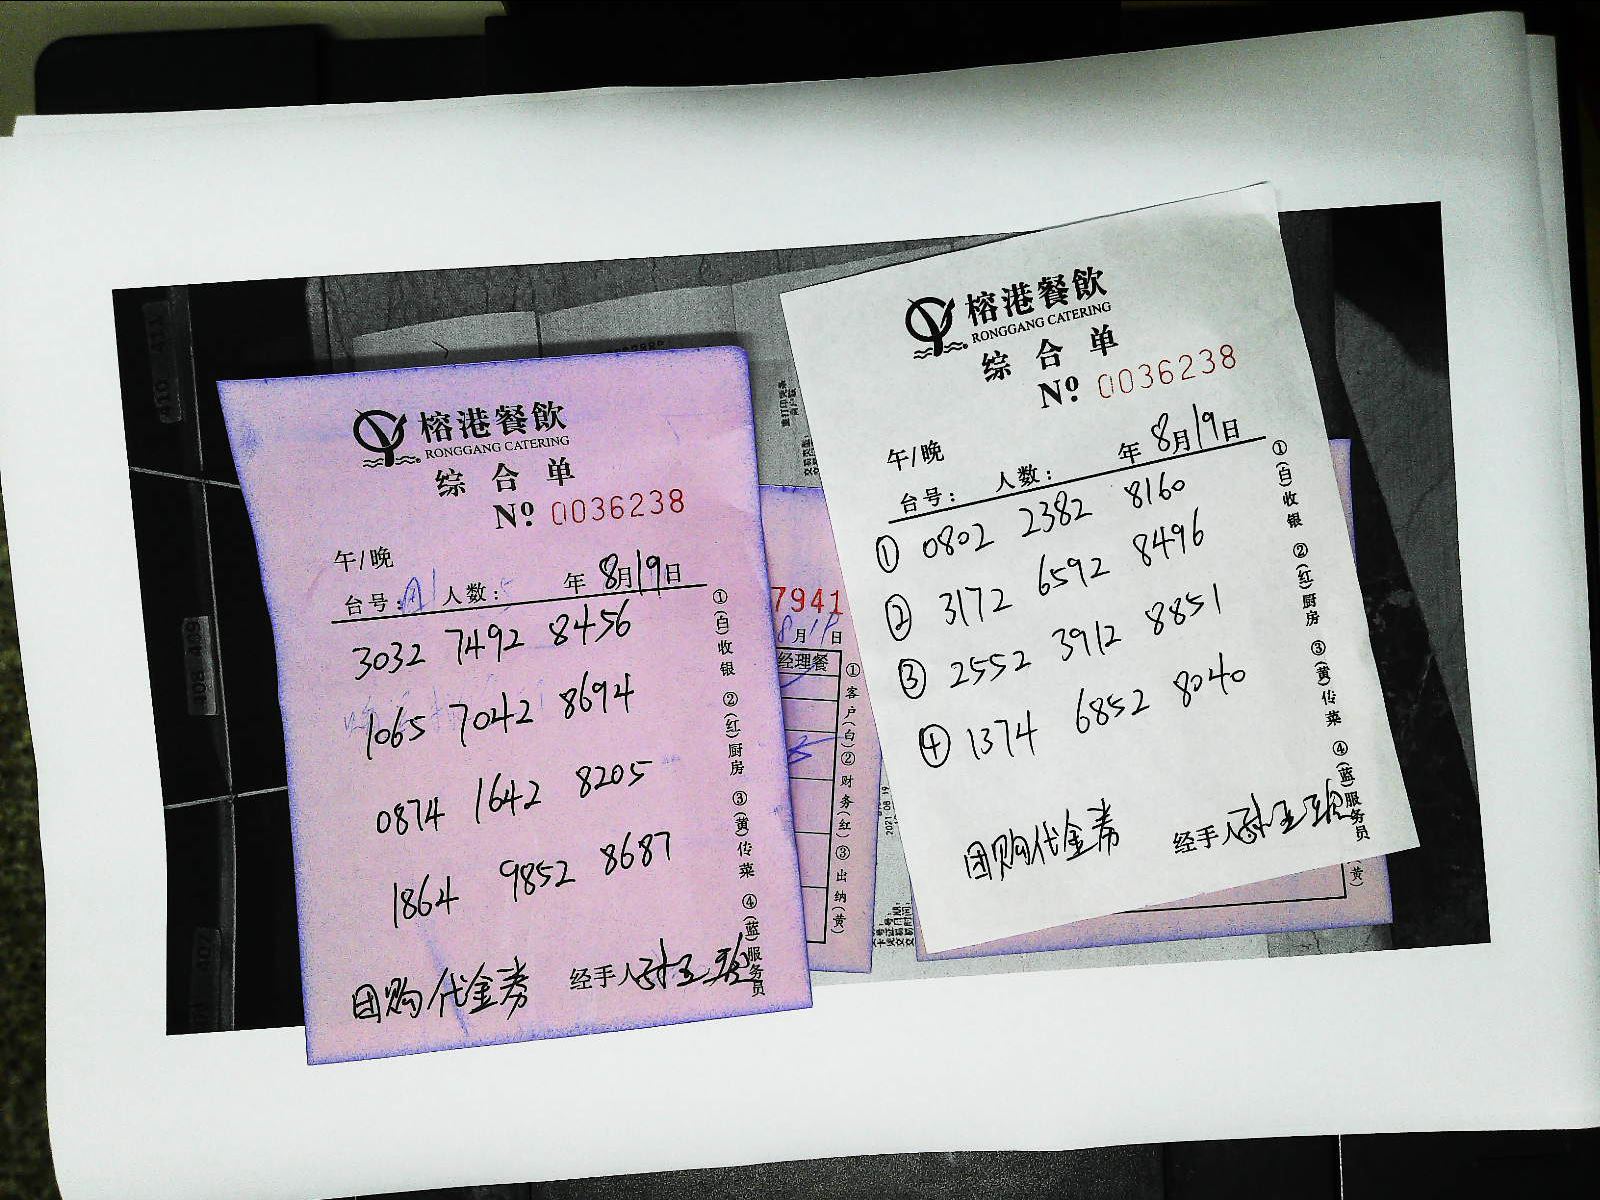 榕港餐飲
RONGGANG CATERING
综合单
No 0036238
午/晚
台号: A1 人数: 年 8月19日
3032 7492 8456
1065 7042 8694
0874 1642 8205
1864 9852 8687
团购代金券 经手人
①(白)收银 ②(红)厨房 ③(黄)传菜 ④(蓝)服务员
榕港餐飲
RONGGANG CATERING
综合单
No 0036238
午/晚
台号: 人数: 年 8月19日
① 0802 2382 8160
② 3172 6592 8496
③ 2552 3912 8851
④ 1374 6852 8040
团购代金券 经手人
①(白)收银 ②(红)厨房 ③(黄)传菜 ④(蓝)服务员
7941
8月19日
经理餐
①客户(白)②财务(红)③出纳(黄)
2021 08 19
卡号:
凭证号:
交易日期:
交易时间:
(黄)
408 409